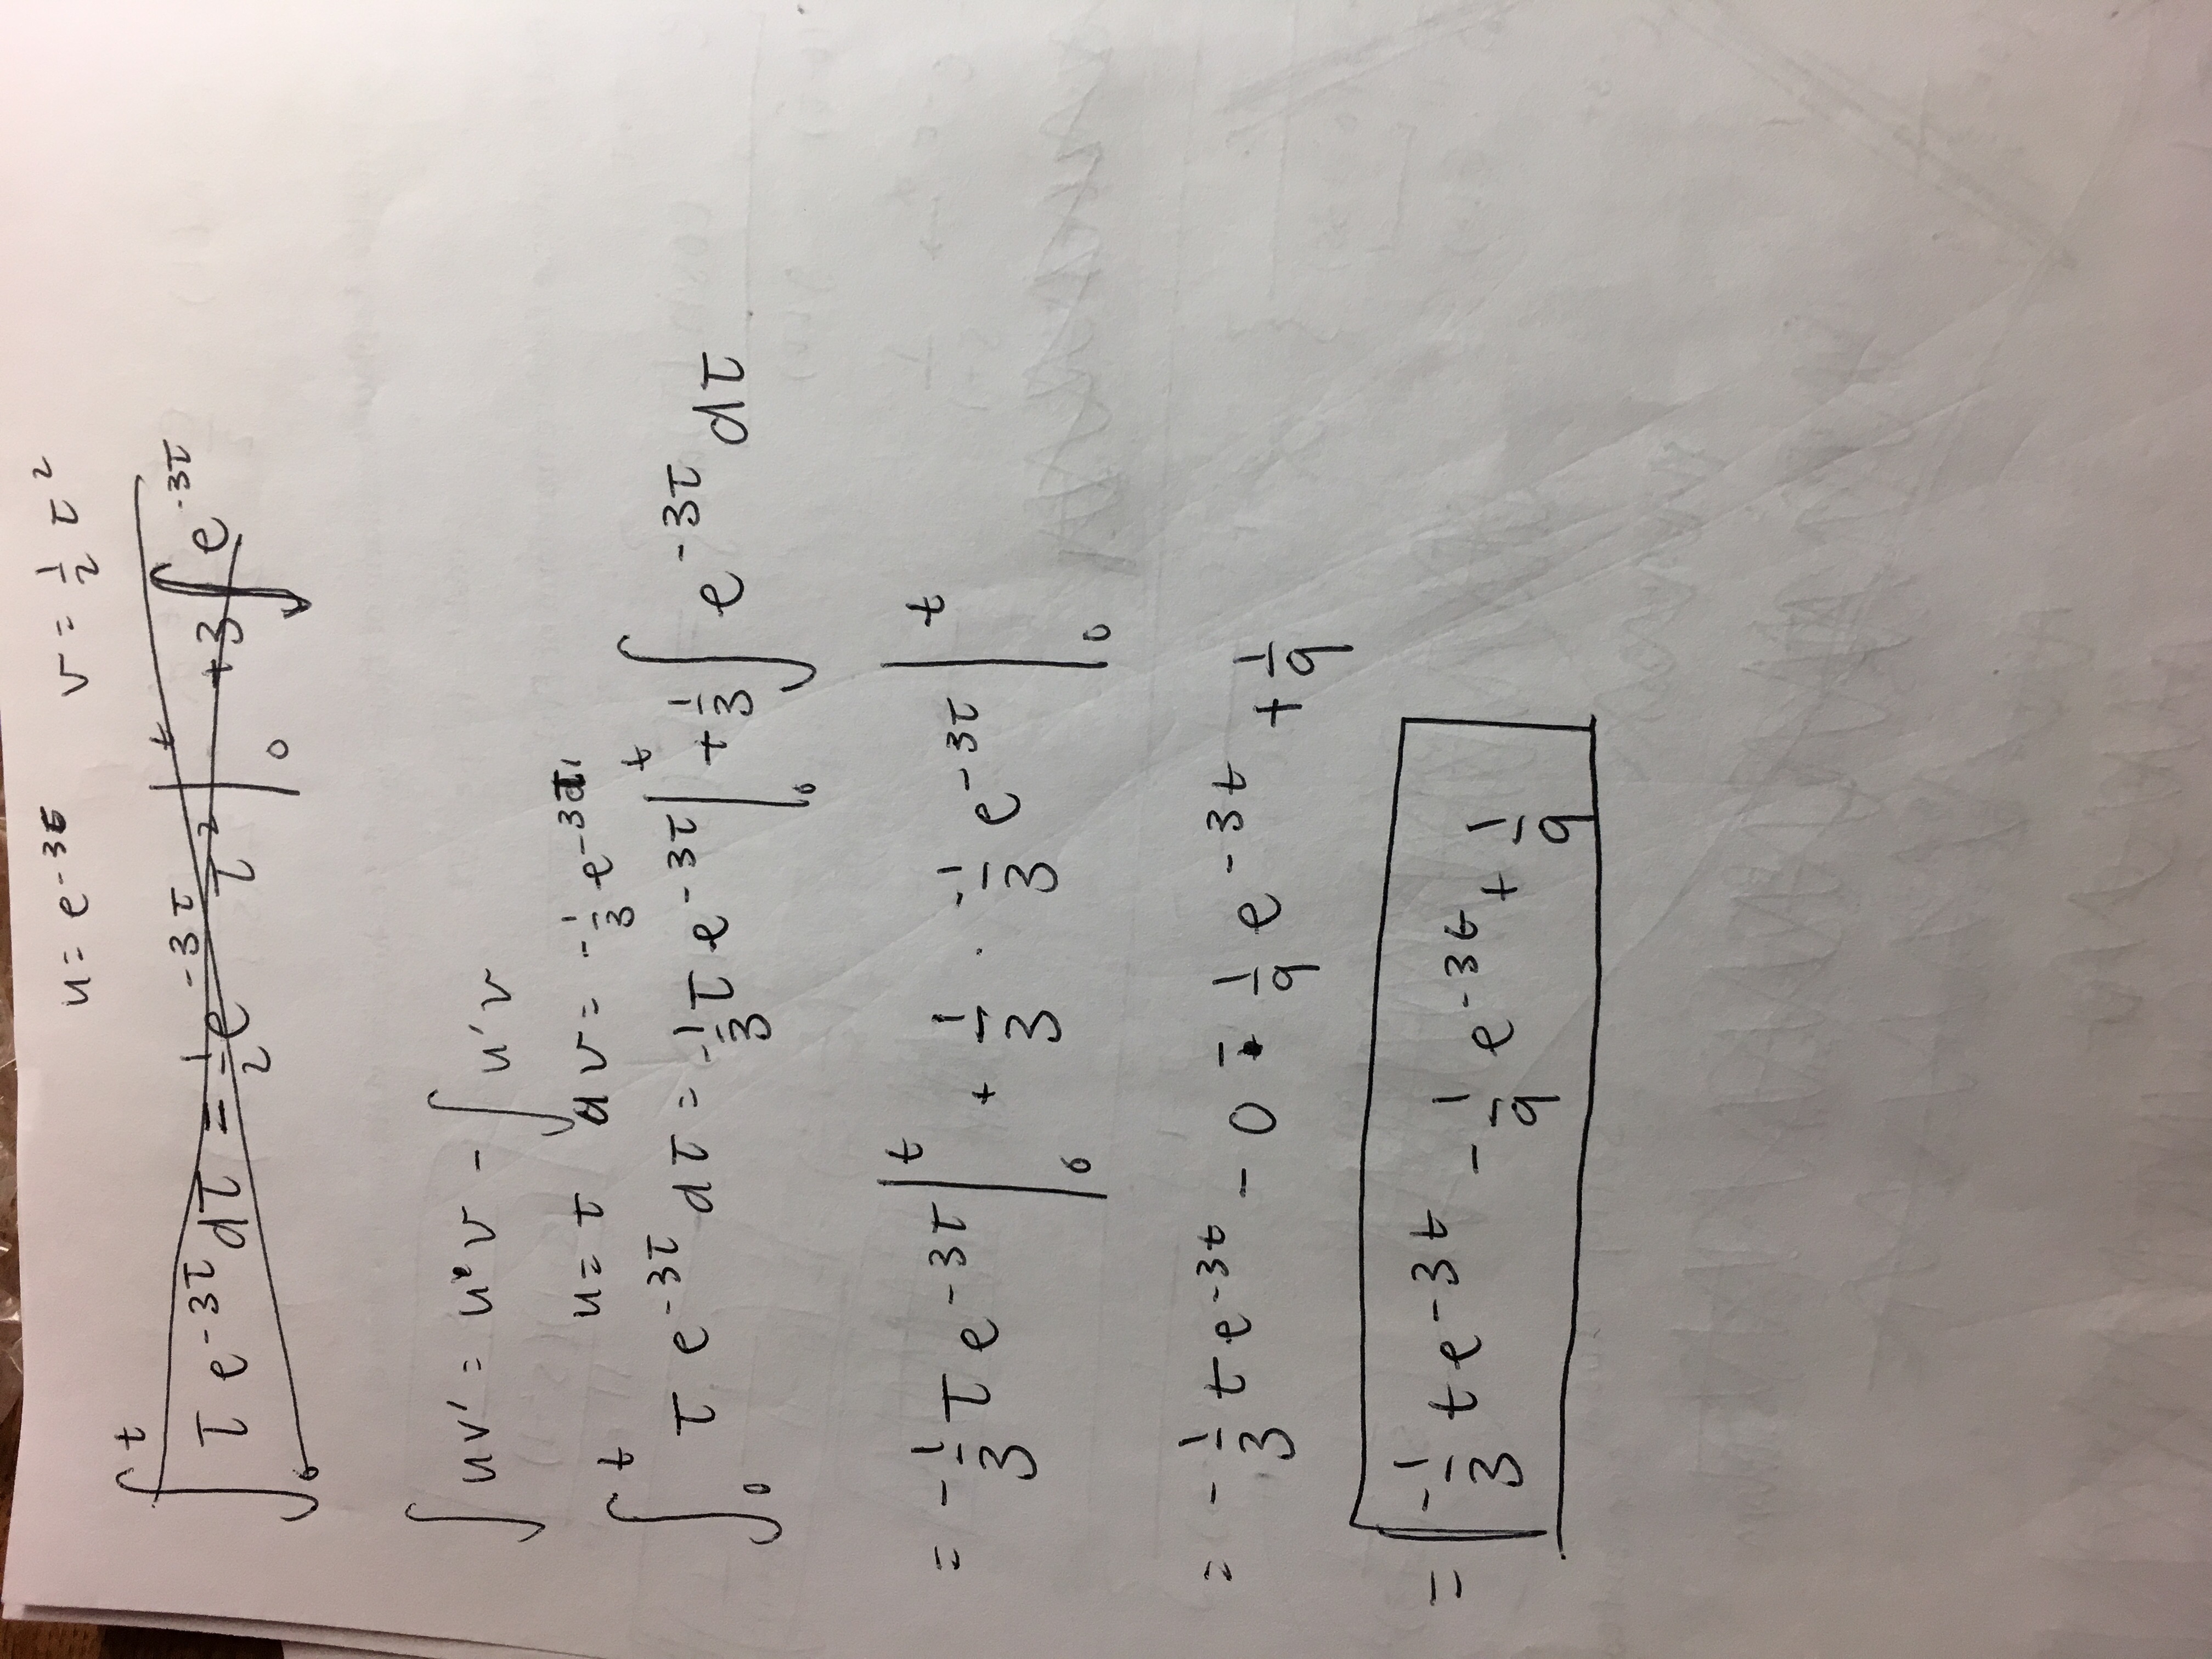 u = e^{-3t}  v = 1/2 τ^2
∫_0^t τ e^{-3τ} dτ = 1/2 e^{-3τ} τ^2 |_0^t + 3 ∫ e^{-3τ}
∫ uv' = u v - ∫ u'v
u = τ  dv = -1/3 e^{-3τ}
∫_0^t τ e^{-3τ} dτ = -1/3 τ e^{-3τ} |_0^t + 1/3 ∫ e^{-3τ} dτ
= -1/3 τ e^{-3τ} |_0^t + 1/3 · -1/3 e^{-3τ} |_0^t
= -1/3 t e^{-3t} - 0 - 1/9 e^{-3t} + 1/9
= -1/3 t e^{-3t} - 1/9 e^{-3t} + 1/9